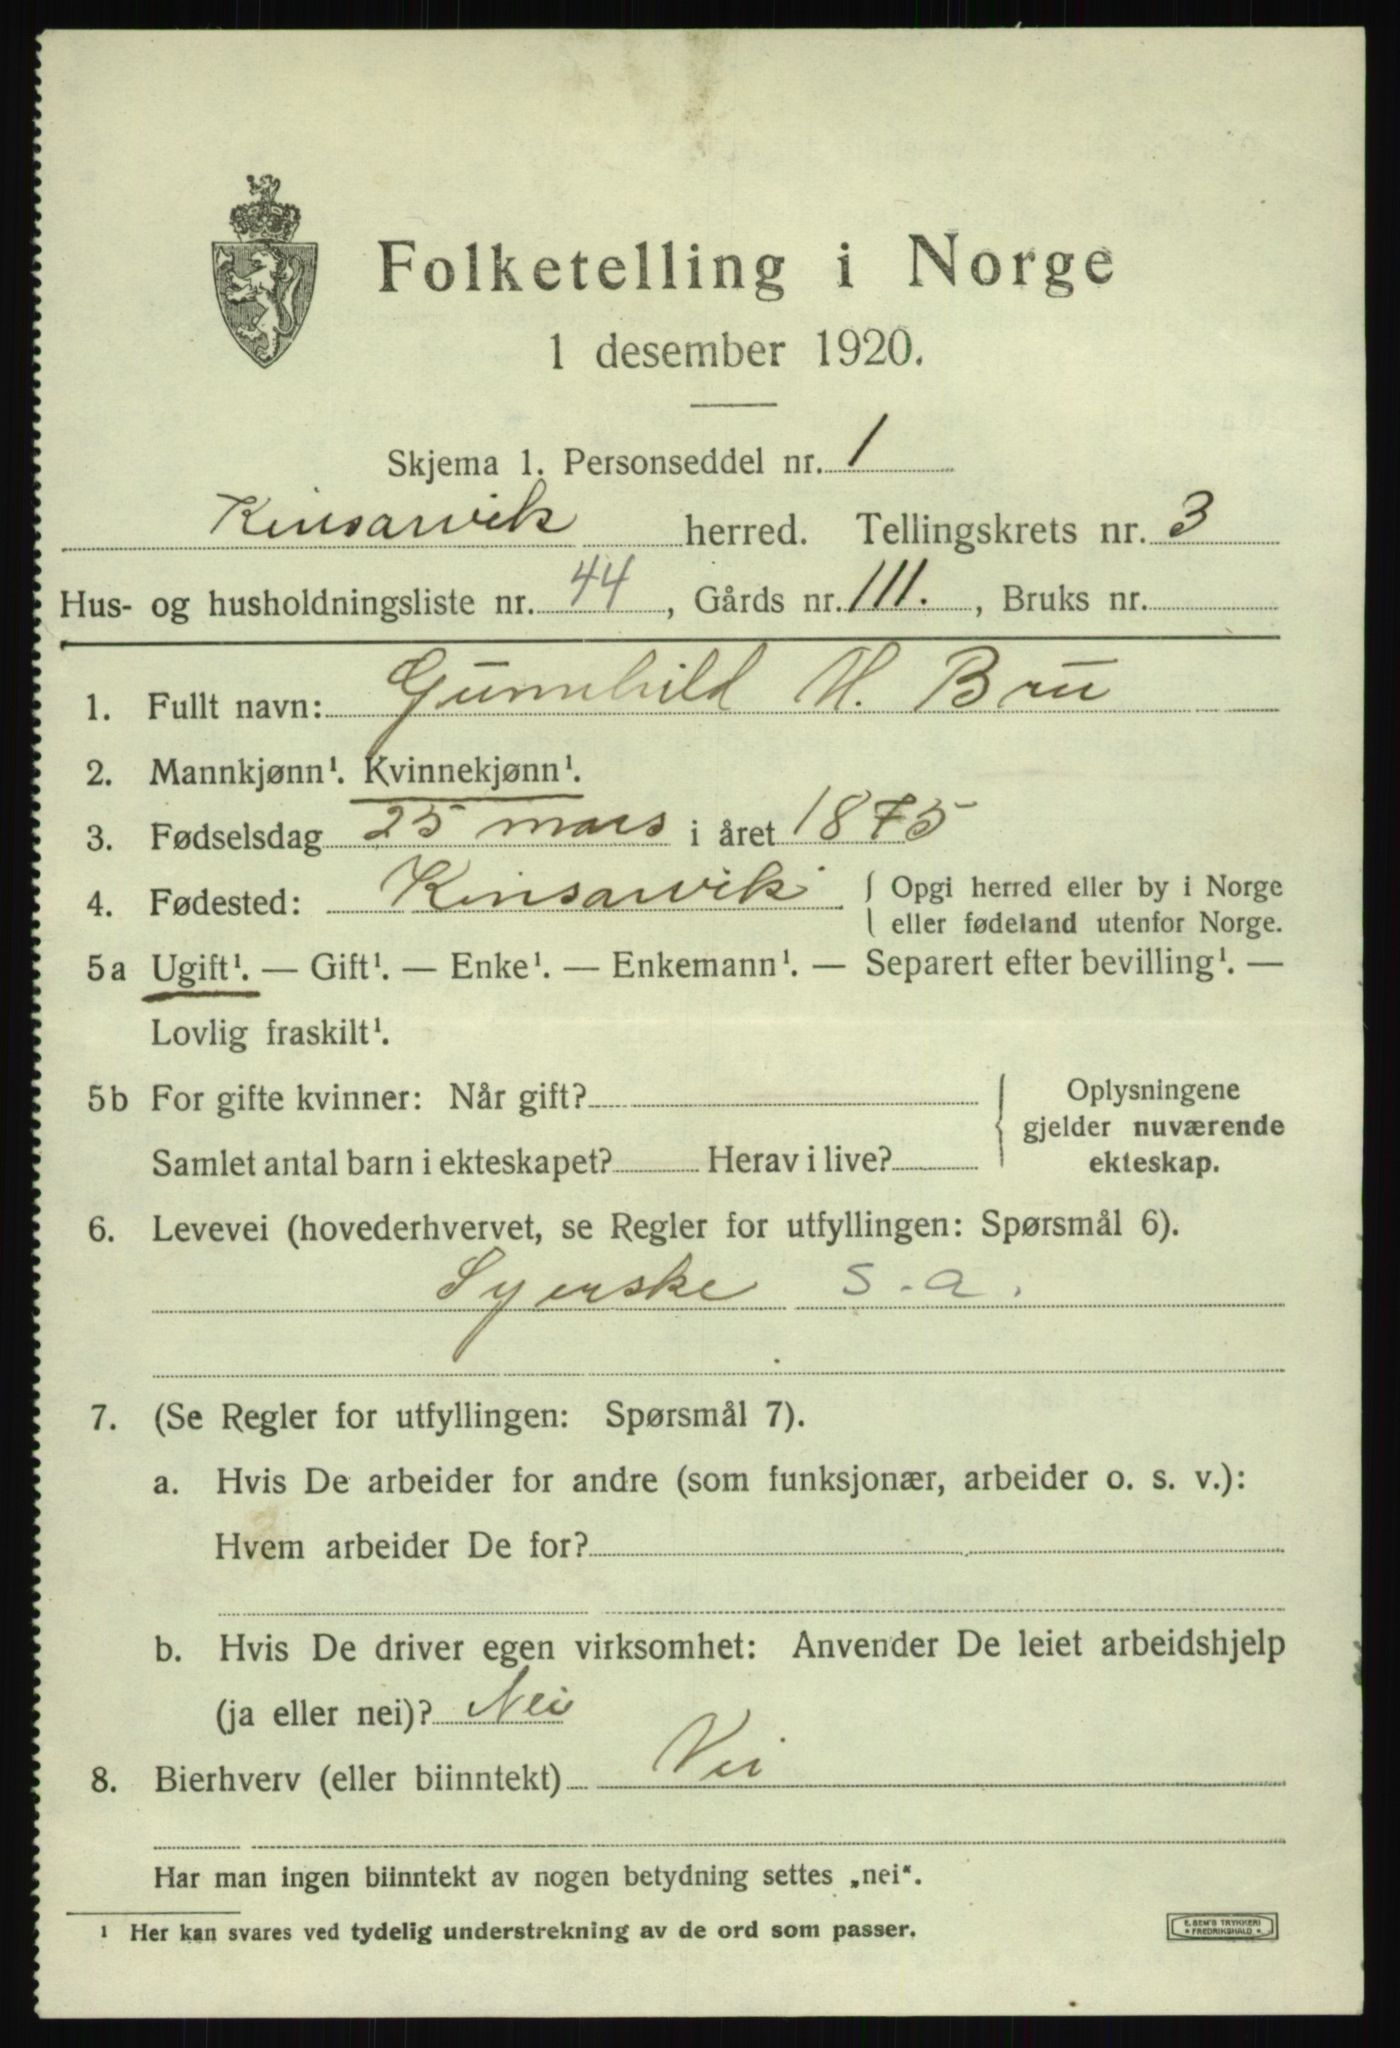 Folketelling i Norge
1 desember 1920.
Skjema 1. Personseddel nr. 1
Kinsarvik herred. Tellingskrets nr. 3
Hus- og husholdningsliste nr. 44, Gårds nr. 111., Bruks nr.
1. Fullt navn: Gunnhild H. Bru
2. Mannkjønn¹. Kvinnekjønn¹.
3. Fødselsdag 25 mars i året 1875
4. Fødested: Kinsarvik { Opgi herred eller by i Norge
eller fødeland utenfor Norge.
5a Ugift¹. — Gift¹. — Enke¹. — Enkemann¹. — Separert efter bevilling¹. —
Lovlig fraskilt¹.
5b For gifte kvinner: Når gift?
Samlet antal barn i ekteskapet? Herav i live?
Oplysningene
gjelder nuværende
ekteskap.
6. Levevei (hovederhvervet, se Regler for utfyllingen: Spørsmål 6).
Syerske s.a.
7. (Se Regler for utfyllingen: Spørsmål 7).
a. Hvis De arbeider for andre (som funksjonær, arbeider o. s. v.):
Hvem arbeider De for?
b. Hvis De driver egen virksomhet: Anvender De leiet arbeidshjelp
(ja eller nei)? Nei
8. Bierhverv (eller biinntekt) Nei
Har man ingen biinntekt av nogen betydning settes „nei“.
¹ Her kan svares ved tydelig understrekning av de ord som passer.
E. SEM'S TRYKKERI
FREDRIKSHALD